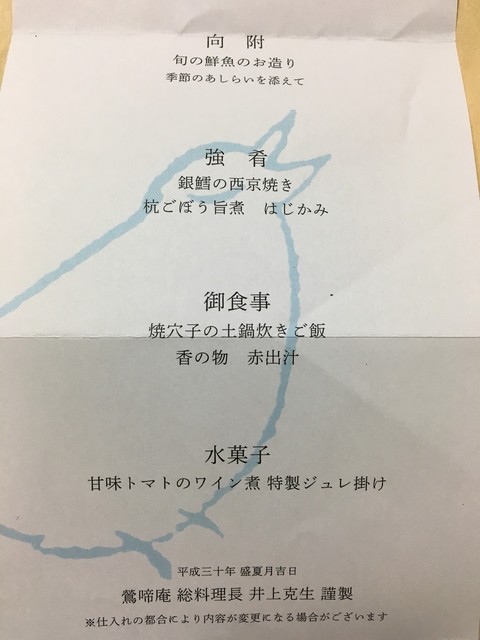 向　附
旬の鮮魚のお造り
季節のあしらいを添えて
強　肴
銀鱈の西京焼き
杭ごぼう旨煮　はじかみ
御食事
焼穴子の土鍋炊きご飯
香の物　赤出汁
水菓子
甘味トマトのワイン煮 特製ジュレ掛け
平成三十年 盛夏月吉日
鶯啼庵 総料理長 井上克生 謹製
※仕入れの都合により内容が変更になる場合がございます